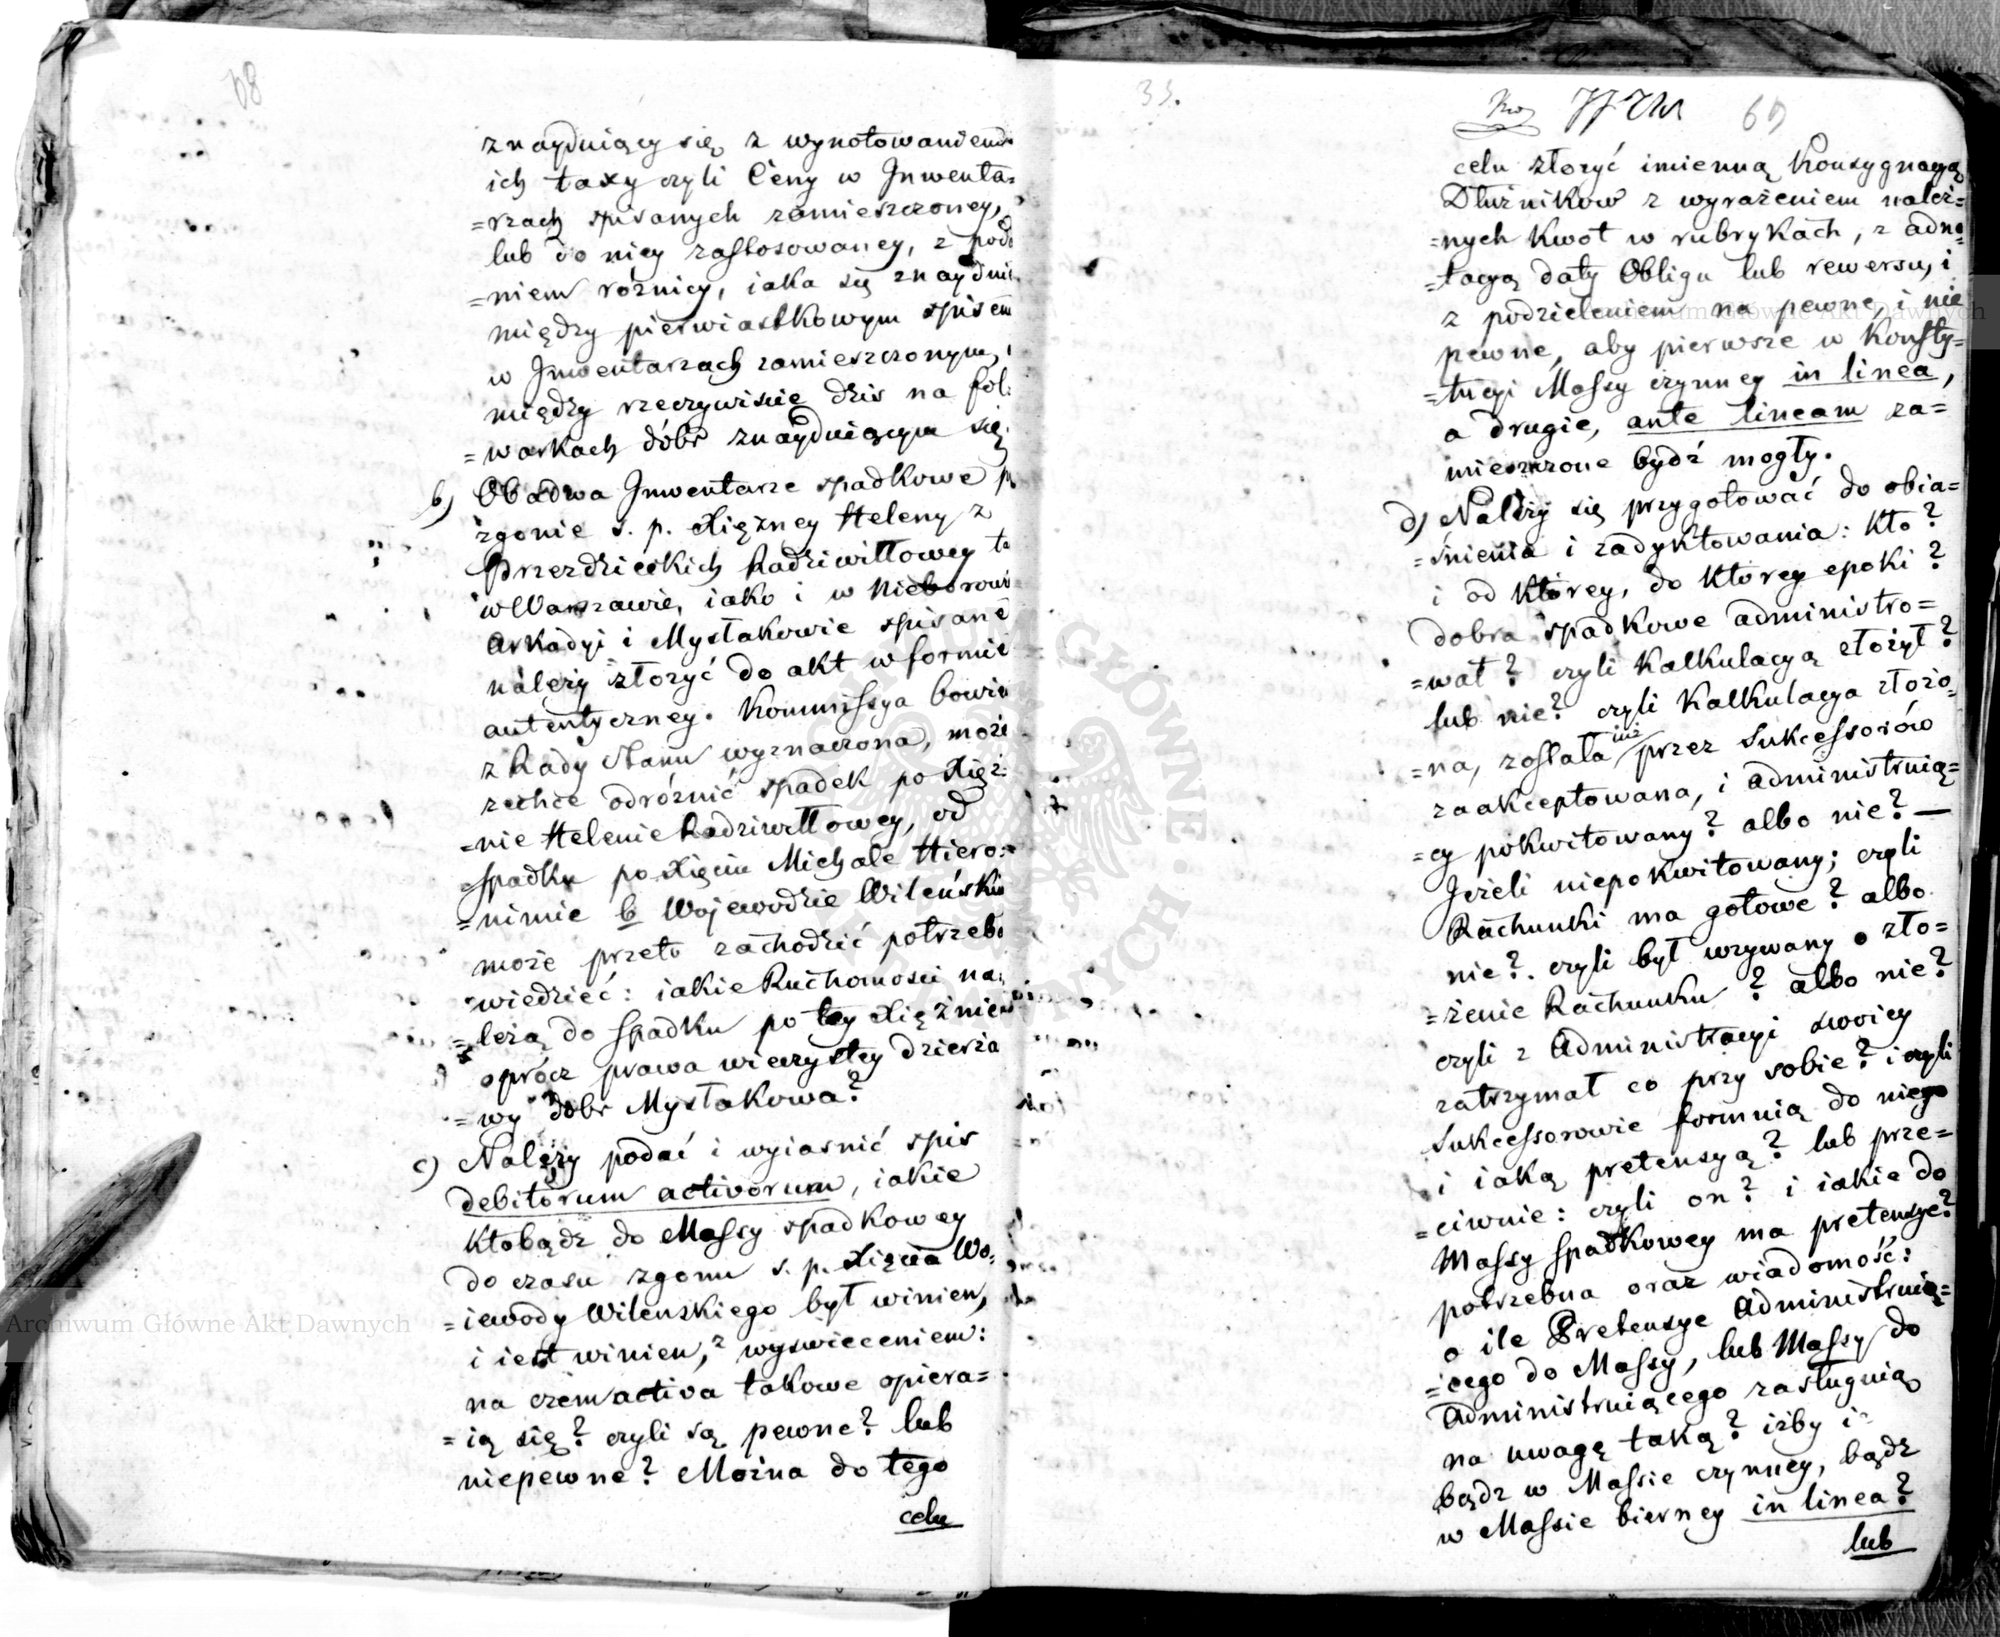 68
znayduiący się z wynotowaniem
ich taxy czyli Ceny w Jnwenta=
=rzach spisanych zamieszczoney,
lub do niey zastosowaney, z pod
=niem różnicy, iaka się znaydui
między pierwiastkowym spisem
w Jnwentarzach zamieszczonym,
między rzeczywiście dziś na fol=
=warkach dóbr znayduiącym się.
b) Obadwa Jnwentarze spadkowe p
zgonie s. p. Xiężney Heleny z
Przezdzieckich Radziwiłłowey ta
w Warszawie, iako i w Nieborowi
Arkadyi i Mysłakowie spisane
należy złożyć do akt w formie
autentyczney. Kommissya bowie
z Rady Stanu wyznaczona, może
zechce odróżnić spadek po Xięż=
=nie Helenie Radziwiłłowey, od
spadku po Xięciu Michale Hiero=
=nimie b Wojewodzie Wileńskim
może przeto zachodzić potrzeba
wiedzieć: iakie Ruchomości na=
=leżą do spadku po tey Xiężnie
oprócz prawa wieczystey dzierża
=wy dóbr Mysłakowa?
c) Należy podać i wyiasnić spis
debitorum activorum, iakie
Ktobądz do Massy spadkowey
do czasu zgonu s. p. Xięcia Wo=
=iewody Wilenskiego był winien,
i iest winien, z wyswieceniem:
na czem activa takowe opiera=
=ią się? czyli są pewne? lub
niepewne? Można do tego
celu
33.
69
celu złożyć imienną Konsygnacyą
Dłużników z wyrażeniem należ=
=nych kwot w rubrykach, z adno=
=tacyą daty Obligu lub rewersu, i
z podzieleniem na pewne, i nie
pewne, aby pierwsze w Konsty=
=tucyi Massy czynney in linea,
a drugie, ante lineam za=
mieszczone bydź mogły.
d) Należy się przygotować do obia=
=śnienia i zadyktowania: Kto?
i od którey, do którey epoki?
dobra spadkowe administro=
=wał? czyli Kalkulacyą złożył?
lub nie? czyli Kalkulacya złożo=
=na, została już przez Sukcessorów
zaakceptowana, i administruią=
=cy pokwitowany? albo nie? —
Jeżeli niepokwitowany; czyli
Rachunki ma gotowe? albo
nie? czyli był wzywany o zło=
=żenie Rachunku? albo nie?
czyli z Administracyi swoiey
zatrzymał co przy sobie? i czyli
Sukcessorowie formuią do niego
i iaką pretensyą? lub prze=
=ciwnie: czyli on? i iakie do
Massy spadkowey ma pretensye?
potrzebna oraz wiadomość:
o ile Pretensye Administruią=
=cego do Massy, lub Massy do
Administruiącego zasługuią
na uwagę taką? iżby i
bądz w Massie czynney, bądz
w Massie bierney in linea?
lub
Archiwum Główne Akt Dawnych
Archiwum Główne Akt Dawnych
ARCHIWUM GŁÓWNE AKT DAWNYCH